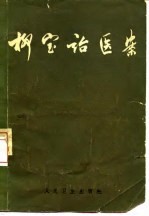 柳宝诒医案
人民卫生出版社